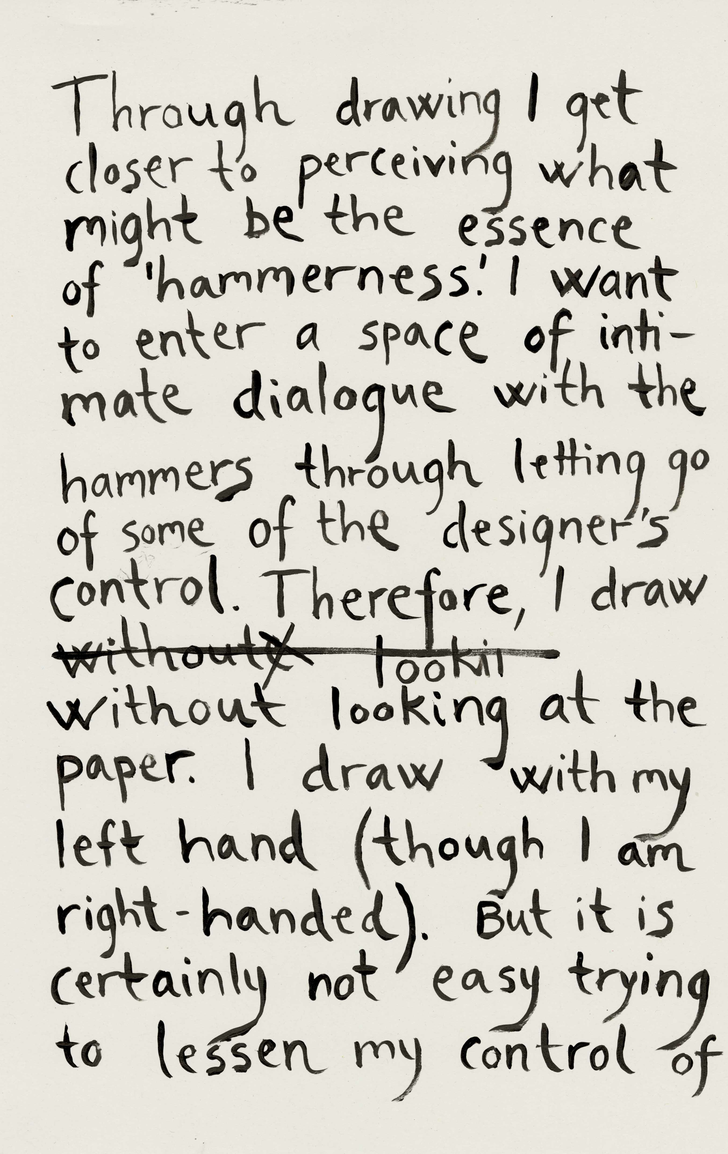 Through drawing I get
closer to perceiving what
might be the essence
of 'hammerness.' I want
to enter a space of inti-
mate dialogue with the
hammers through letting go
of some of the designer's
control. Therefore, I draw
without lookin
without looking at the
paper. I draw with my
left hand (though I am
right-handed). But it is
certainly not easy trying
to lessen my control of